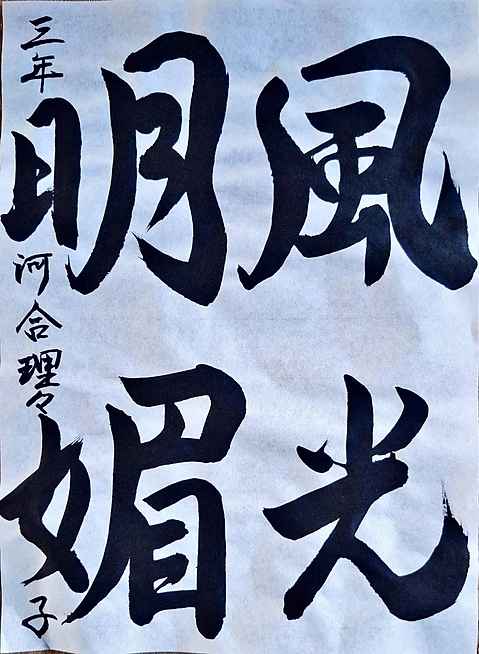 風光
明媚
三年 河合理々子